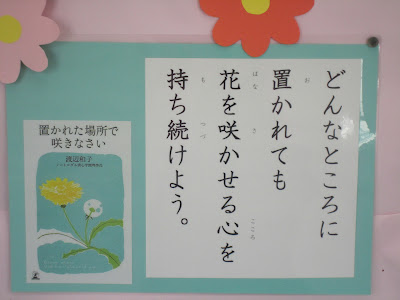 どんなところに
置かれても
花を咲かせる心を
持ち続けよう。
お
はな
さ
こころ
も
つづ
置かれた場所で
咲きなさい
渡辺和子